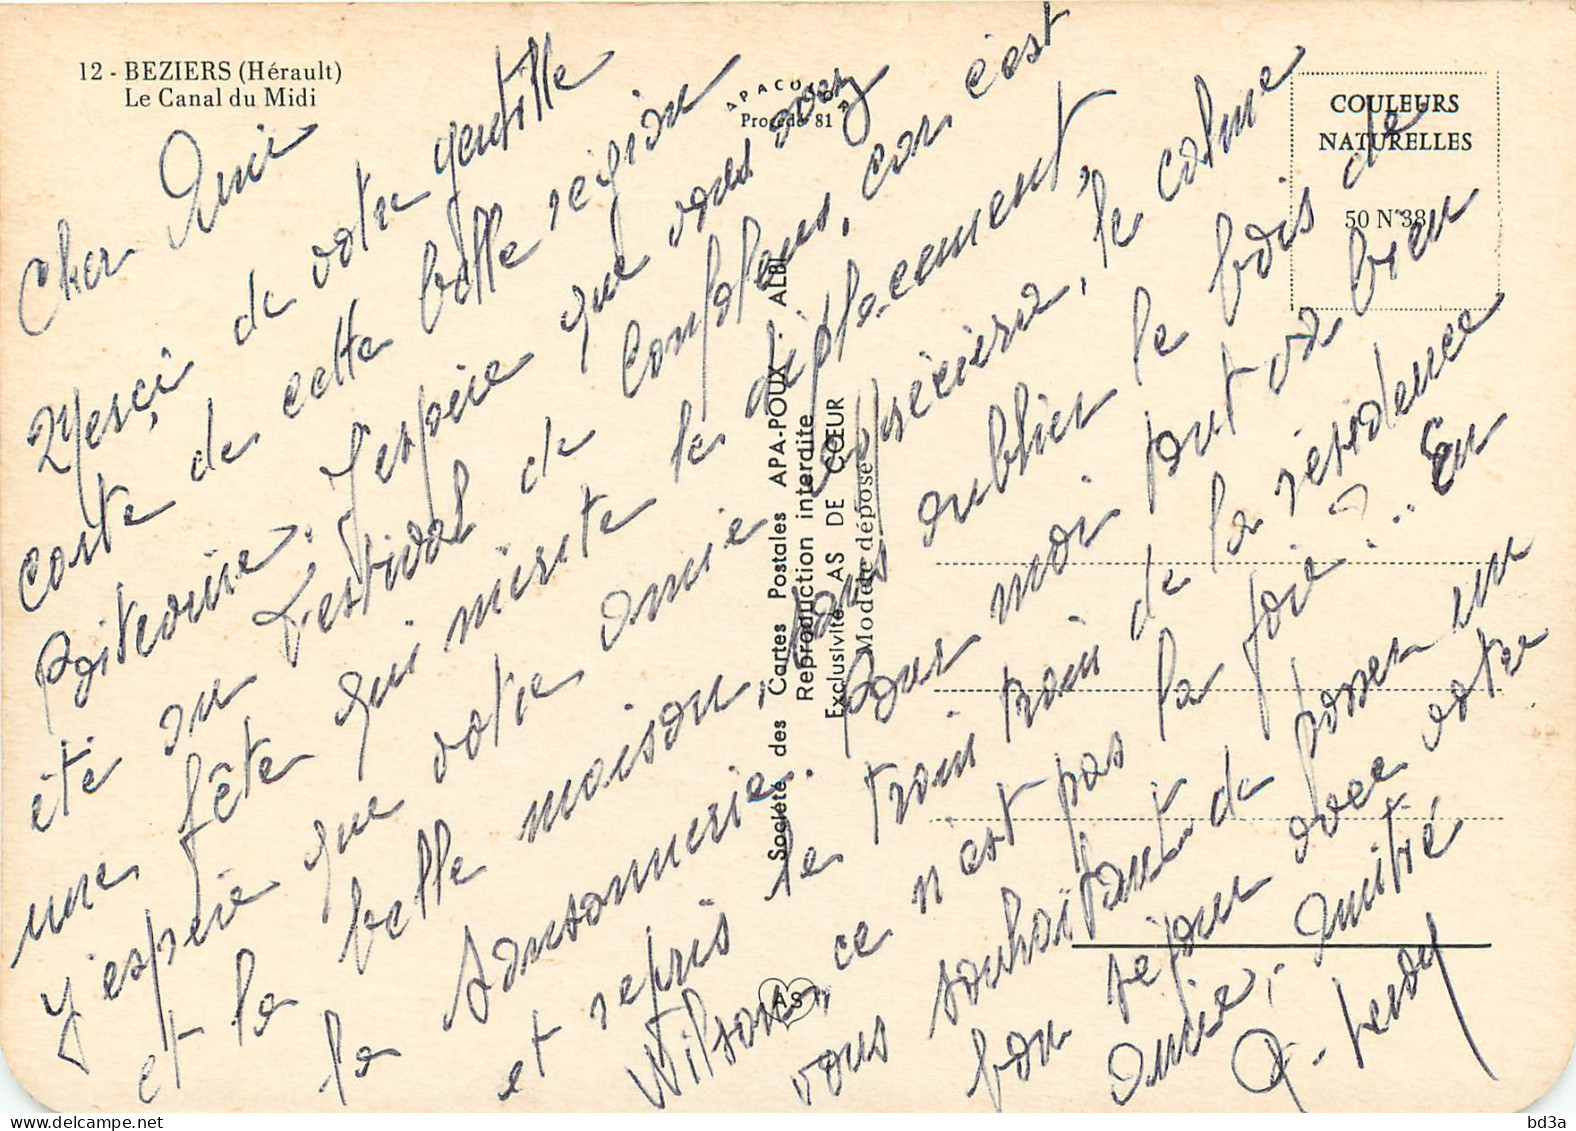 12 - BEZIERS (Hérault)
Le Canal du Midi
APACOLOR
Procédé 81
COULEURS
NATURELLES
50 N° 38
Société des Cartes Postales APA-POUX - ALBI
Reproduction interdite
Exclusivité AS DE CŒUR
Modèle déposé
AS
Cher Ami
Merci de votre gentille
carte de cette belle région
Poitevine. J'espère que vous avez
été au Festival de Confolens, car c'est
une fête qui mérite le déplacement,
j'espère que votre amie apprécière, le calme
et la belle maison, sans oublier le bois de
la Sansonnerie. Pour moi tout va bien
et repris le train train de la résidence
Wilson, ce n'est pas la joie?.. En
vous souhaitant de passer un
bon séjour avec votre
amie, Amitié